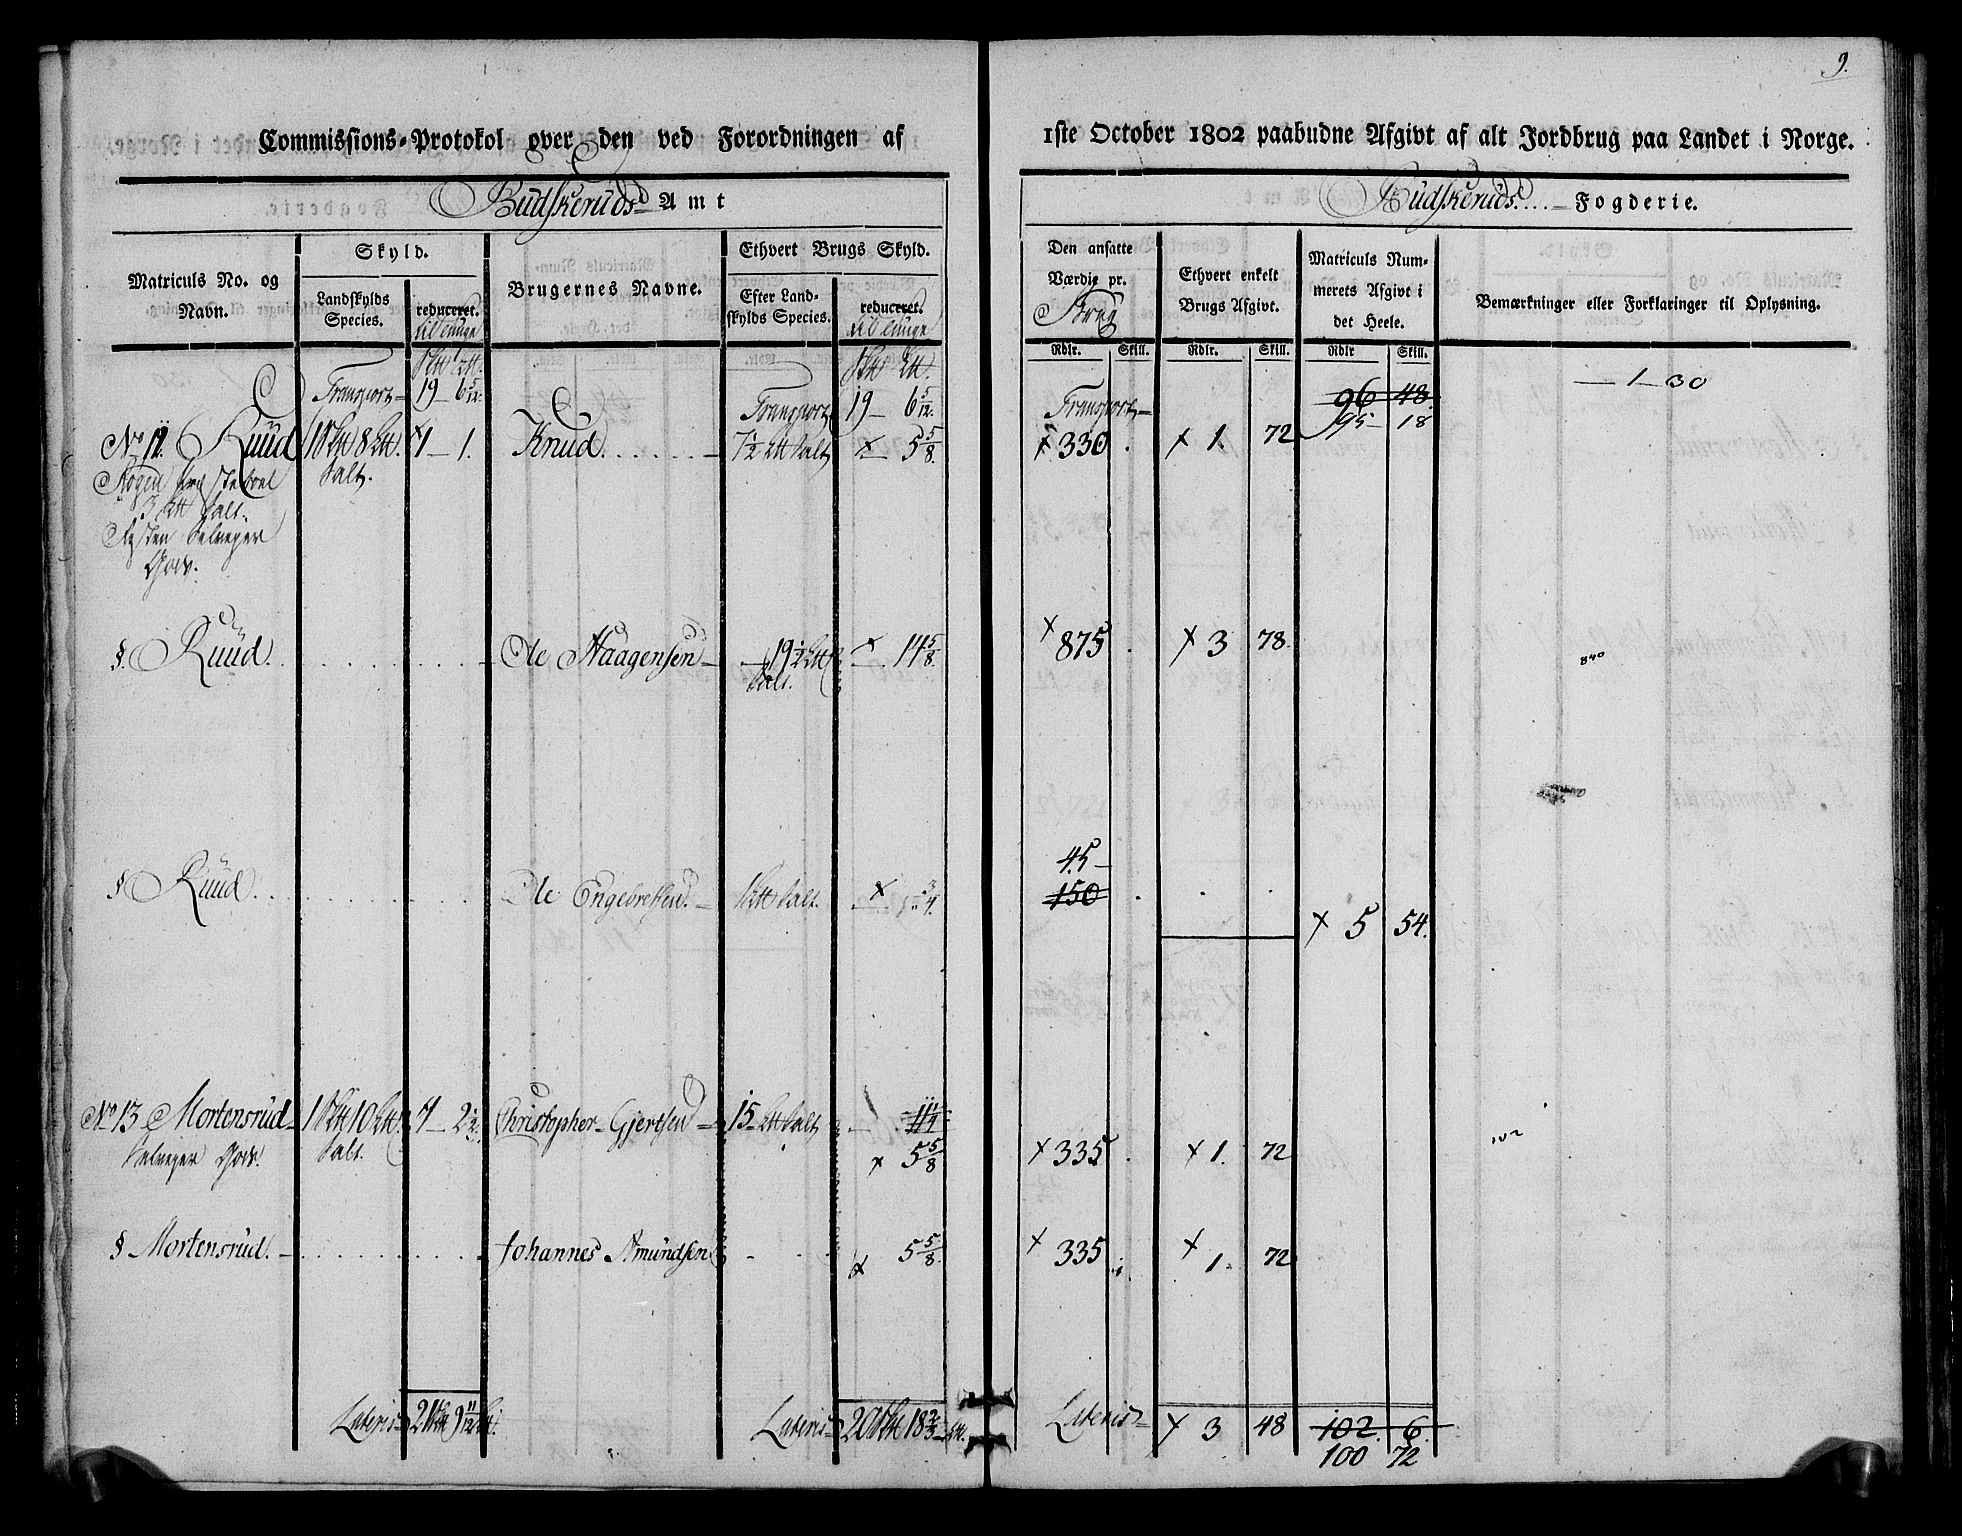 9.
Commissions-Protokol over den ved Forordningen af 1ste October 1802 paabudne Afgivt af alt Jordbrug paa Landet i Norge.
Budskeruds Amt
Budskeruds Fogderie.
Matriculs No. og Navn.
Skyld.
Landskylds Species.
reduceret.
til tunge
Brugernes Navne.
Ethvert Brugs Skyld.
Efter Landskylds Species.
reduceret.
til tunge
Den ansatte Værdie pr. Brug
Ethvert enkelt Brugs Afgivt.
Matriculs Nummerets Afgivt i det Heele.
Bemærkninger eller Forklaringer til Oplysning.
Rdlr. Skill. Rdlr. Skill. Rdlr Skill.
Transport 19 – 6 5/12 Transport 19 – 6 5/12. Transport 96 48. – 1 – 30
95 – 18
No 12. Ruud 8 1 – 1. Knud 7 1/2 Salt × 5 5/8. × 330 × 1. 72
Salt.
3 Salt.
Gods.
§. Ruud. Ole Haagensen 19 1/2 × 14 5/8. × 875 × 3 78. 840
Salt.
45 –
§ Ruud Ole Engebretsen. Salt. × 3/4. 150
× 5 54.
No 13 Mortensrud 1 10 1 – 2 1/2 Christopher Gjertsen 15 Salt 11 1/4
Gods. Salt. × 5 5/8 × 335 × 1. 72 102
§ Mortensrud. Johannes Amundsen × 5 5/8. × 335 × 1. 72
Lateris 21 9 11/12 Lateris 20 18 2/3 Lateris × 3 48 102. 6.
100 72